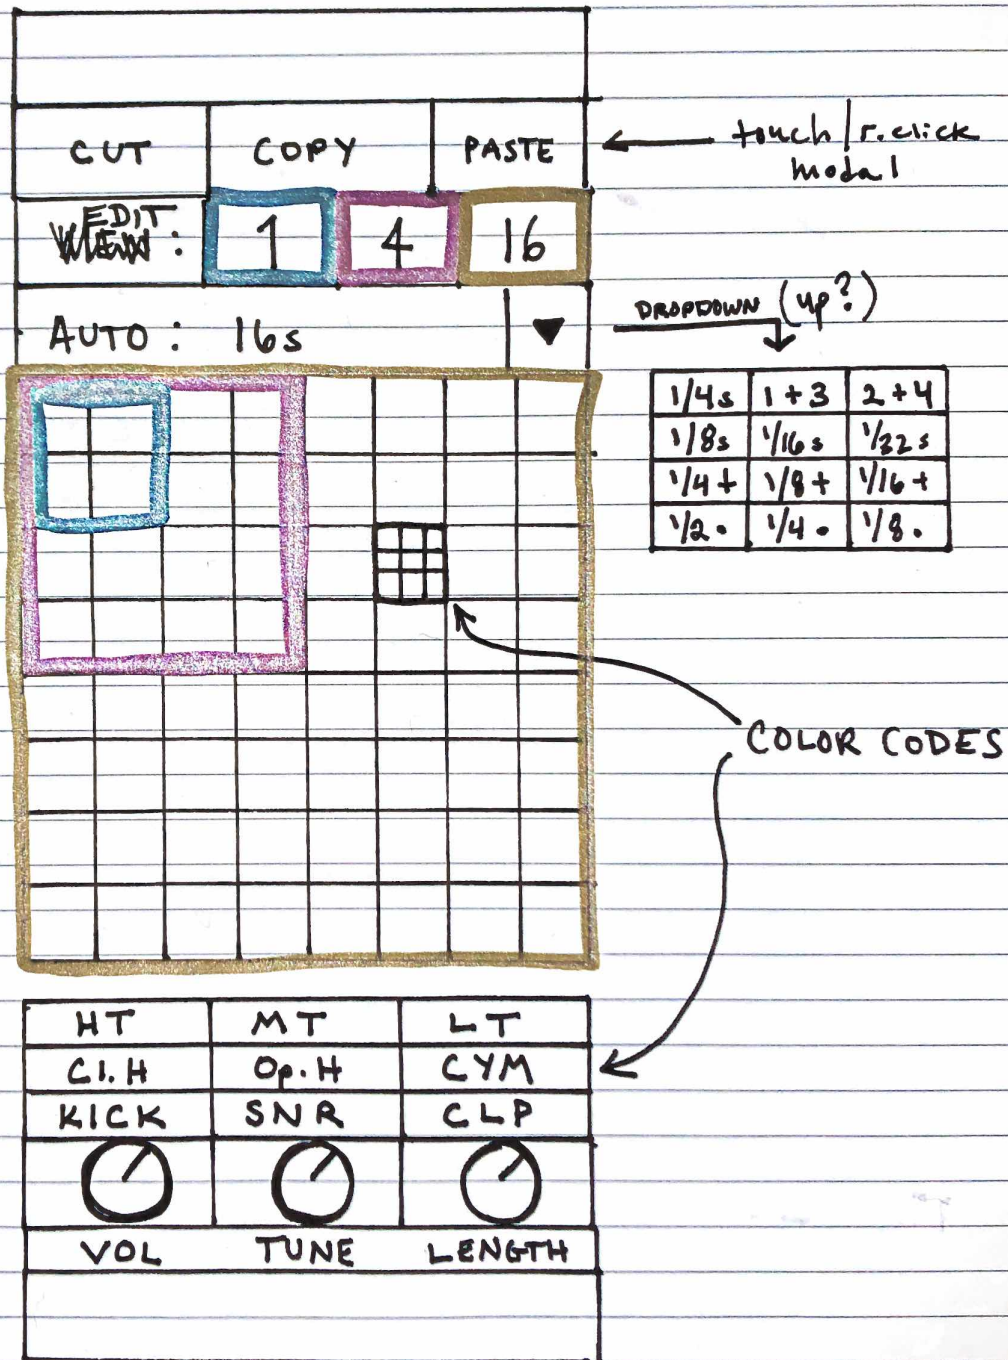 CUT COPY PASTE
touch/r.click
modal
EDIT
VIEW: 1 4 16
AUTO: 16s ▼
DROPDOWN (up?)
1/4s 1+3 2+4
1/8s 1/16s 1/32s
1/4t 1/8t 1/16t
1/2. 1/4. 1/8.
COLOR CODES
HT MT LT
Cl.H Op.H CYM
KICK SNR CLP
VOL TUNE LENGTH